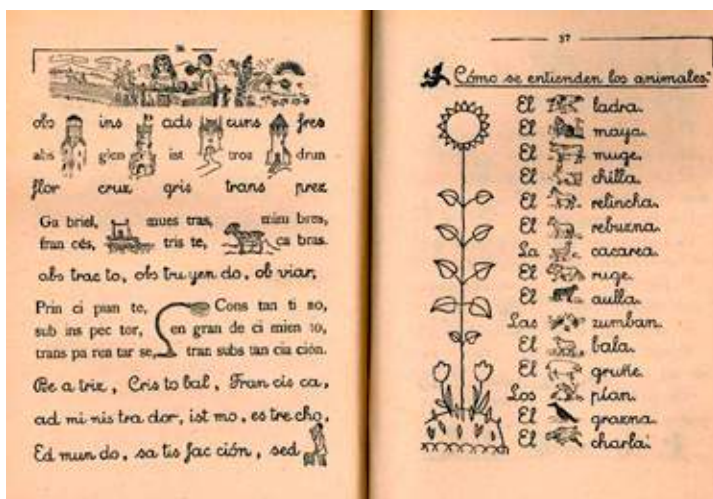 36
obs ins ads cuns fres
abs glon ist tros drun
flor cruz gris trans prez
Ga briel, mues tras, mim bres,
fran cés, tris te, ca bras.
obs trac to, obs tru yen do, ob viar,
Prin ci pian te, Cons tan ti no,
sub ins pec tor, en gran de ci mien to,
trans pa ren tar se, tran subs tan cia ción.
Be a triz, Cris to bal, Fran cis ca,
ad mi nis tra dor, ist mo, es tre cho,
Ed mun do, sa tis fac ción, sed
37
Cómo se entienden los animales:
El ladra.
El maya.
El muge.
El chilla.
El relincha.
El rebuzna.
La cacarea.
El ruge.
El aulla.
Las zumban.
El bala.
El gruñe.
Los pían.
El grazna.
El charla.